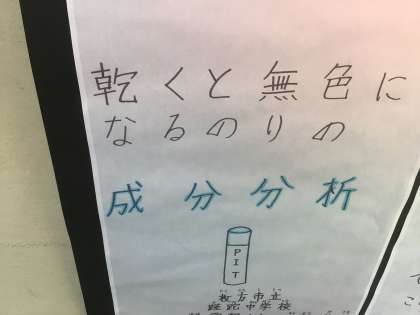 乾くと無色に
なるのりの
成分分析
PIT
枚方市立
蹉跎中学校